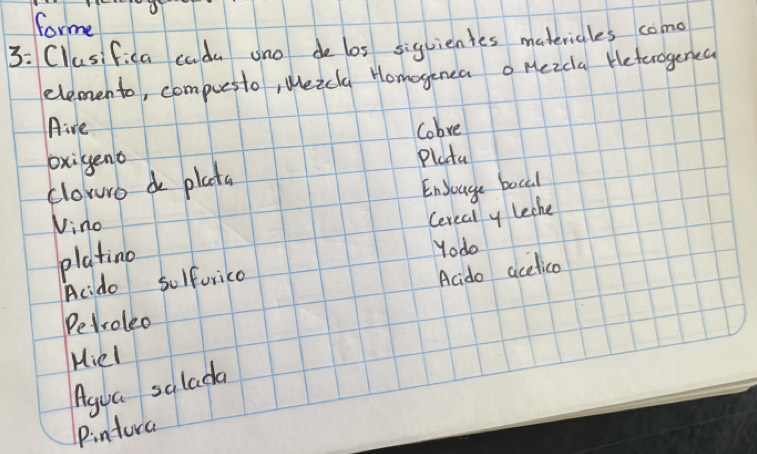 forme
3: Clasifica cada uno de los siguientes materiales como
elemento, compuesto, Mezcla Homogenea o Mezcla Heterogenea
Aire
oxigeno
cloruro de plata
Vino
platino
Acido sulfurico
Petroleo
Miel
Agua salada
Pintura
Cobre
Plata
Enjuage bocal
Cereal y leche
Yodo
Acido acetico